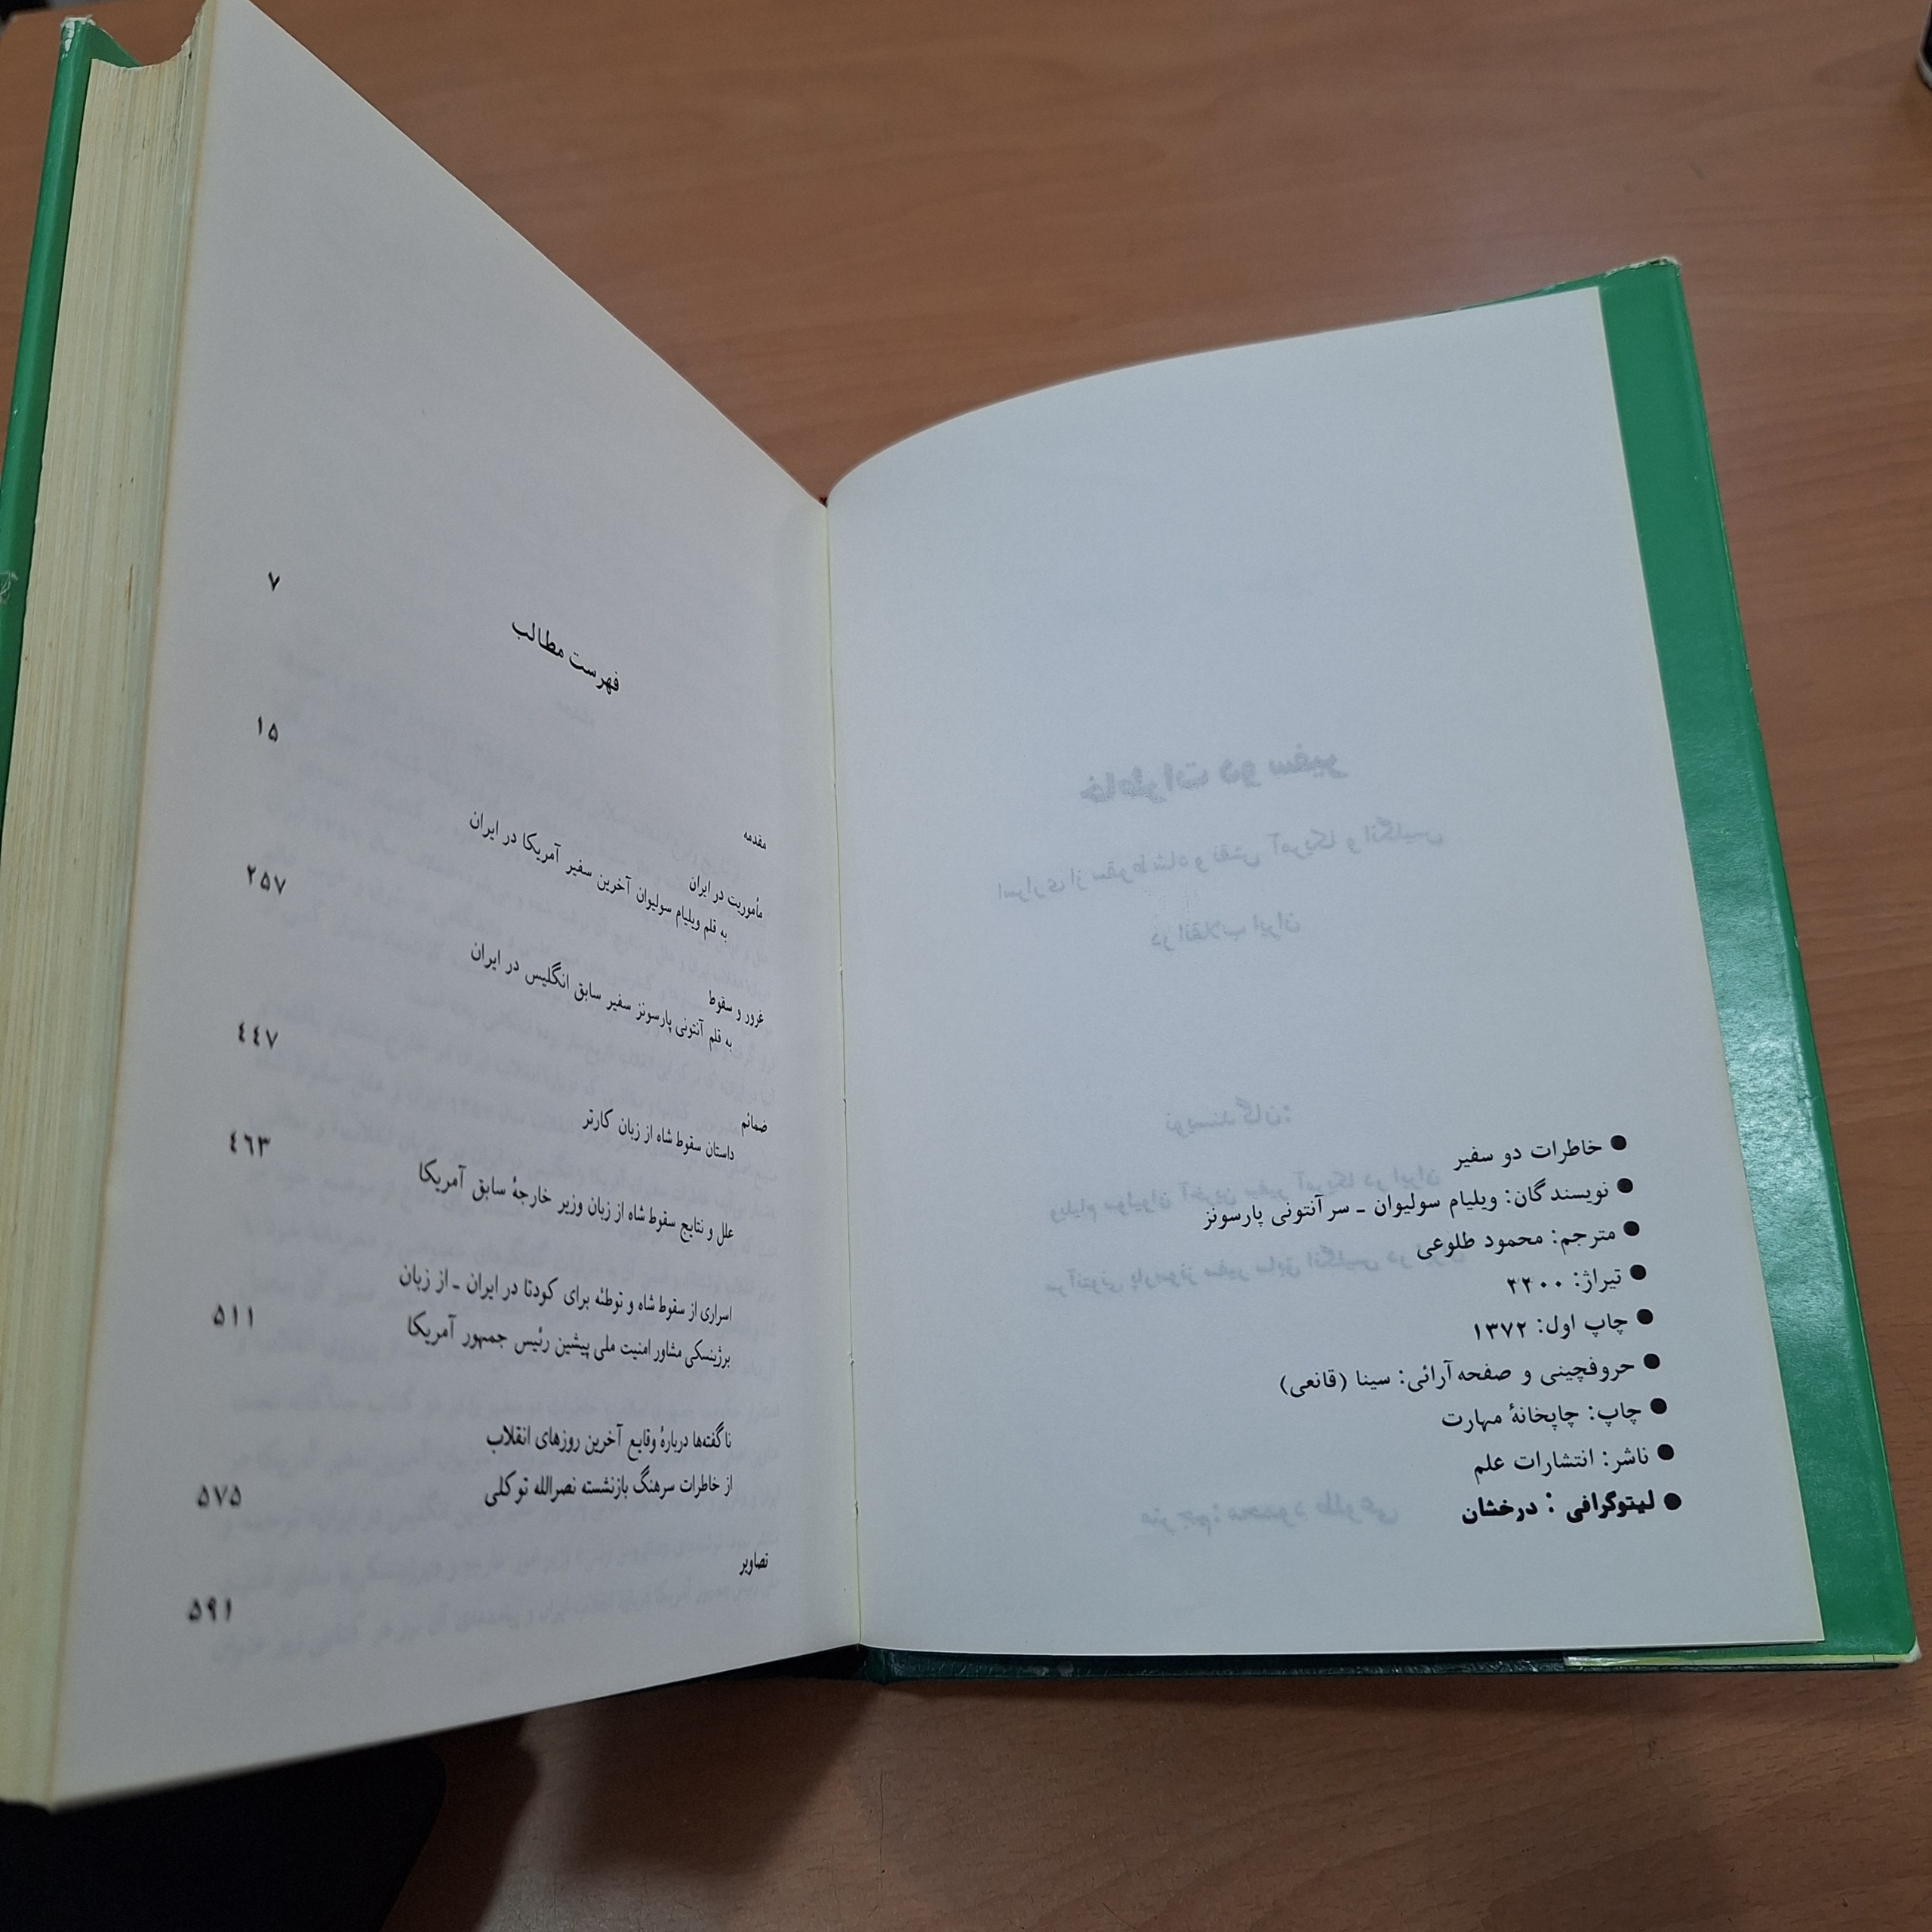 ● خاطرات دو سفیر
● نویسندگان: ویلیام سولیوان ـ سر آنتونی پارسونز
● مترجم: محمود طلوعی
● تیراژ: ۳۲۰۰
● چاپ اول: ۱۳۷۲
● حروفچینی و صفحه‌آرائی: سینا (قانعی)
● چاپ: چاپخانهٔ مهارت
● ناشر: انتشارات علم
● لیتوگرافی : درخشان
فهرست مطالب
مقدمه ۷
مأموریت در ایران
به قلم ویلیام سولیوان آخرین سفیر آمریکا در ایران ۱۵
غرور و سقوط
به قلم آنتونی پارسونز سفیر سابق انگلیس در ایران ۲۵۷
ضمائم
داستان سقوط شاه از زبان کارتر ٤٤٧
علل و نتایج سقوط شاه از زبان وزیر خارجهٔ سابق آمریکا ٤٦٣
اسراری از سقوط شاه و توطئه برای کودتا در ایران ـ از زبان
برژینسکی مشاور امنیت ملی پیشین رئیس جمهور آمریکا ۵۱۱
ناگفته‌ها دربارهٔ وقایع آخرین روزهای انقلاب
از خاطرات سرهنگ بازنشسته نصرالله توکلی ۵۷۵
تصاویر ۵۹۱